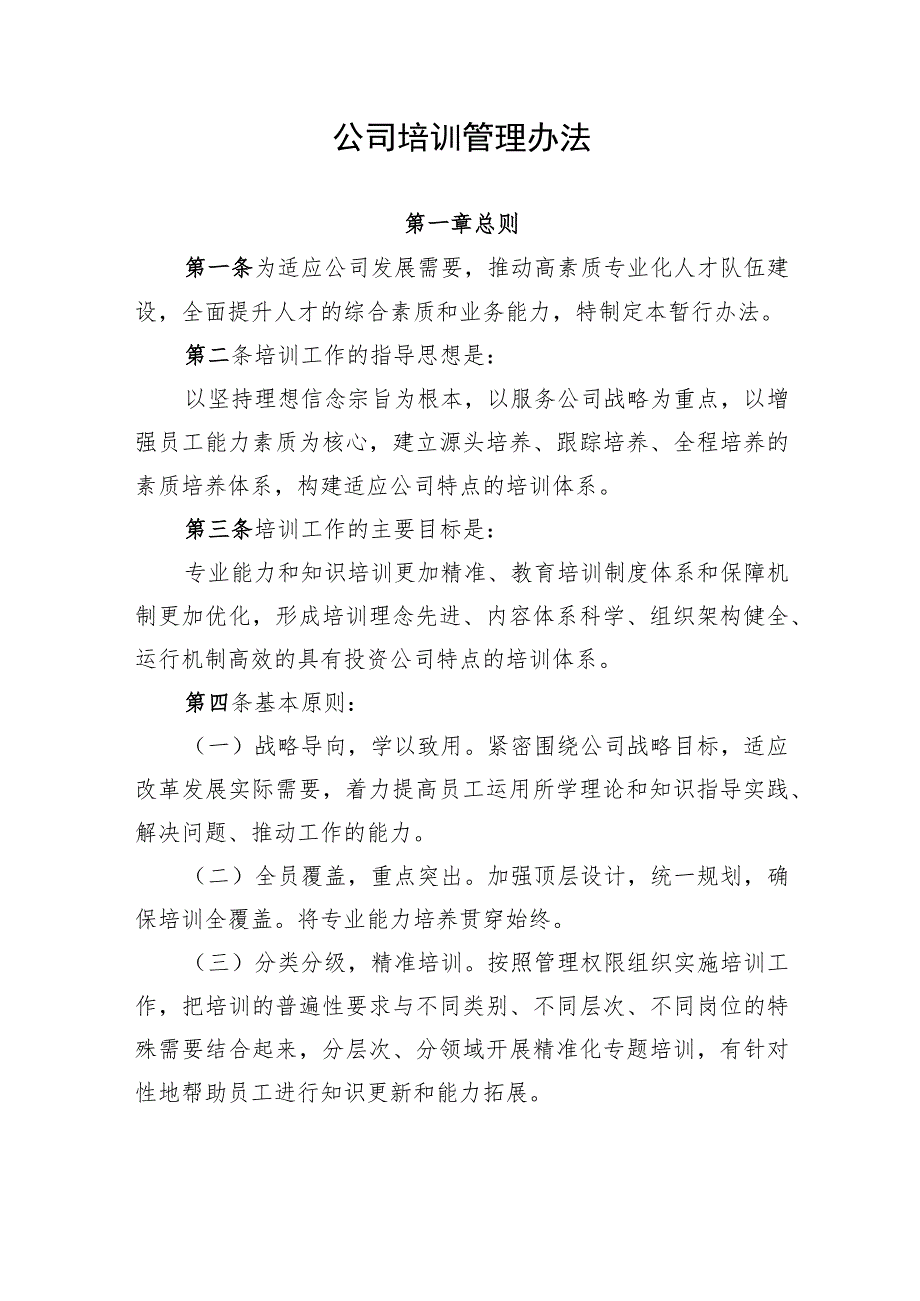 公司培训管理办法
第一章总则
第一条为适应公司发展需要，推动高素质专业化人才队伍建
设，全面提升人才的综合素质和业务能力，特制定本暂行办法。
第二条培训工作的指导思想是：
以坚持理想信念宗旨为根本，以服务公司战略为重点，以增
强员工能力素质为核心，建立源头培养、跟踪培养、全程培养的
素质培养体系，构建适应公司特点的培训体系。
第三条培训工作的主要目标是：
专业能力和知识培训更加精准、教育培训制度体系和保障机
制更加优化，形成培训理念先进、内容体系科学、组织架构健全、
运行机制高效的具有投资公司特点的培训体系。
第四条基本原则：
（一）战略导向，学以致用。紧密围绕公司战略目标，适应
改革发展实际需要，着力提高员工运用所学理论和知识指导实践、
解决问题、推动工作的能力。
（二）全员覆盖，重点突出。加强顶层设计，统一规划，确
保培训全覆盖。将专业能力培养贯穿始终。
（三）分类分级，精准培训。按照管理权限组织实施培训工
作，把培训的普遍性要求与不同类别、不同层次、不同岗位的特
殊需要结合起来，分层次、分领域开展精准化专题培训，有针对
性地帮助员工进行知识更新和能力拓展。